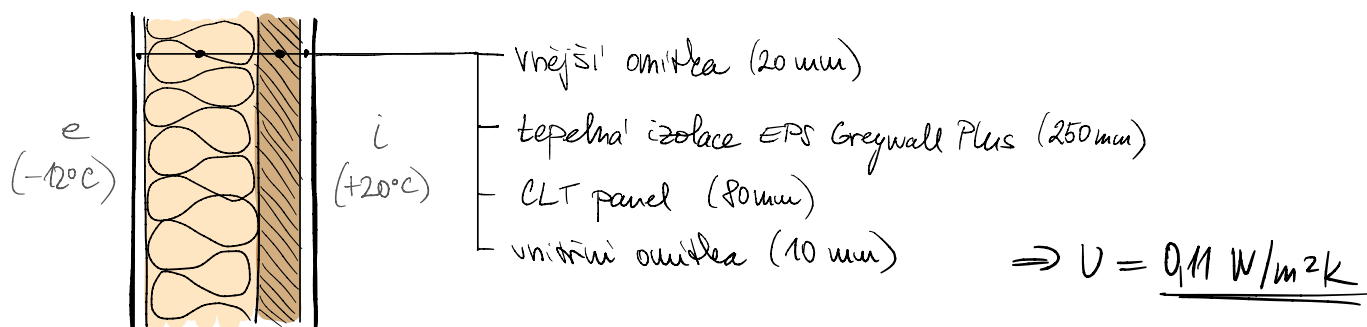 vnější omítka (20 mm)
tepelná izolace EPS Greywall Plus (250 mm)
e
i
(-12°C)
(+20°C)
CLT panel (80 mm)
vnitřní omítka (10 mm)
=> U = 0,11 W/m²K